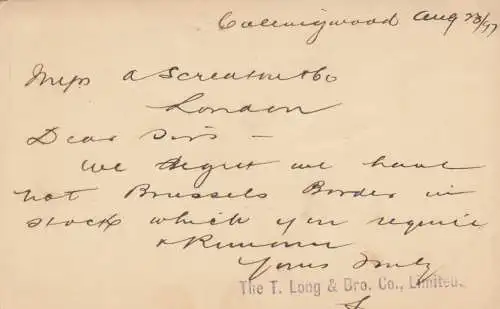 Collingwood Aug 23/97
Messrs A Screaton & Co
London
Dear Sirs –
We regret we have
not Brussels Border in
stock which you require
& Remain
Yours Truly
The T. Long & Bro. Co., Limited.